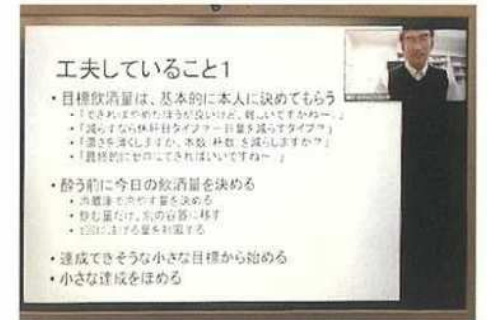 工夫していること1
・目標飲酒量は、基本的に本人に決めてもらう
・「できればやめたほうが良いけど、難しいですかね〜。」
・「減らすなら休肝日タイプ？一日量を減らすタイプ？」
・「濃さを薄くしますか、本数・杯数を減らしますか？」
・「最終的にゼロにできればいいですね〜。」
・酔う前に今日の飲酒量を決める
・冷蔵庫で冷やす量を決める
・飲む量だけ、別の容器に移す
・1回に注げる量を
・達成できそうな小さな目標から始める
・小さな達成をほめる